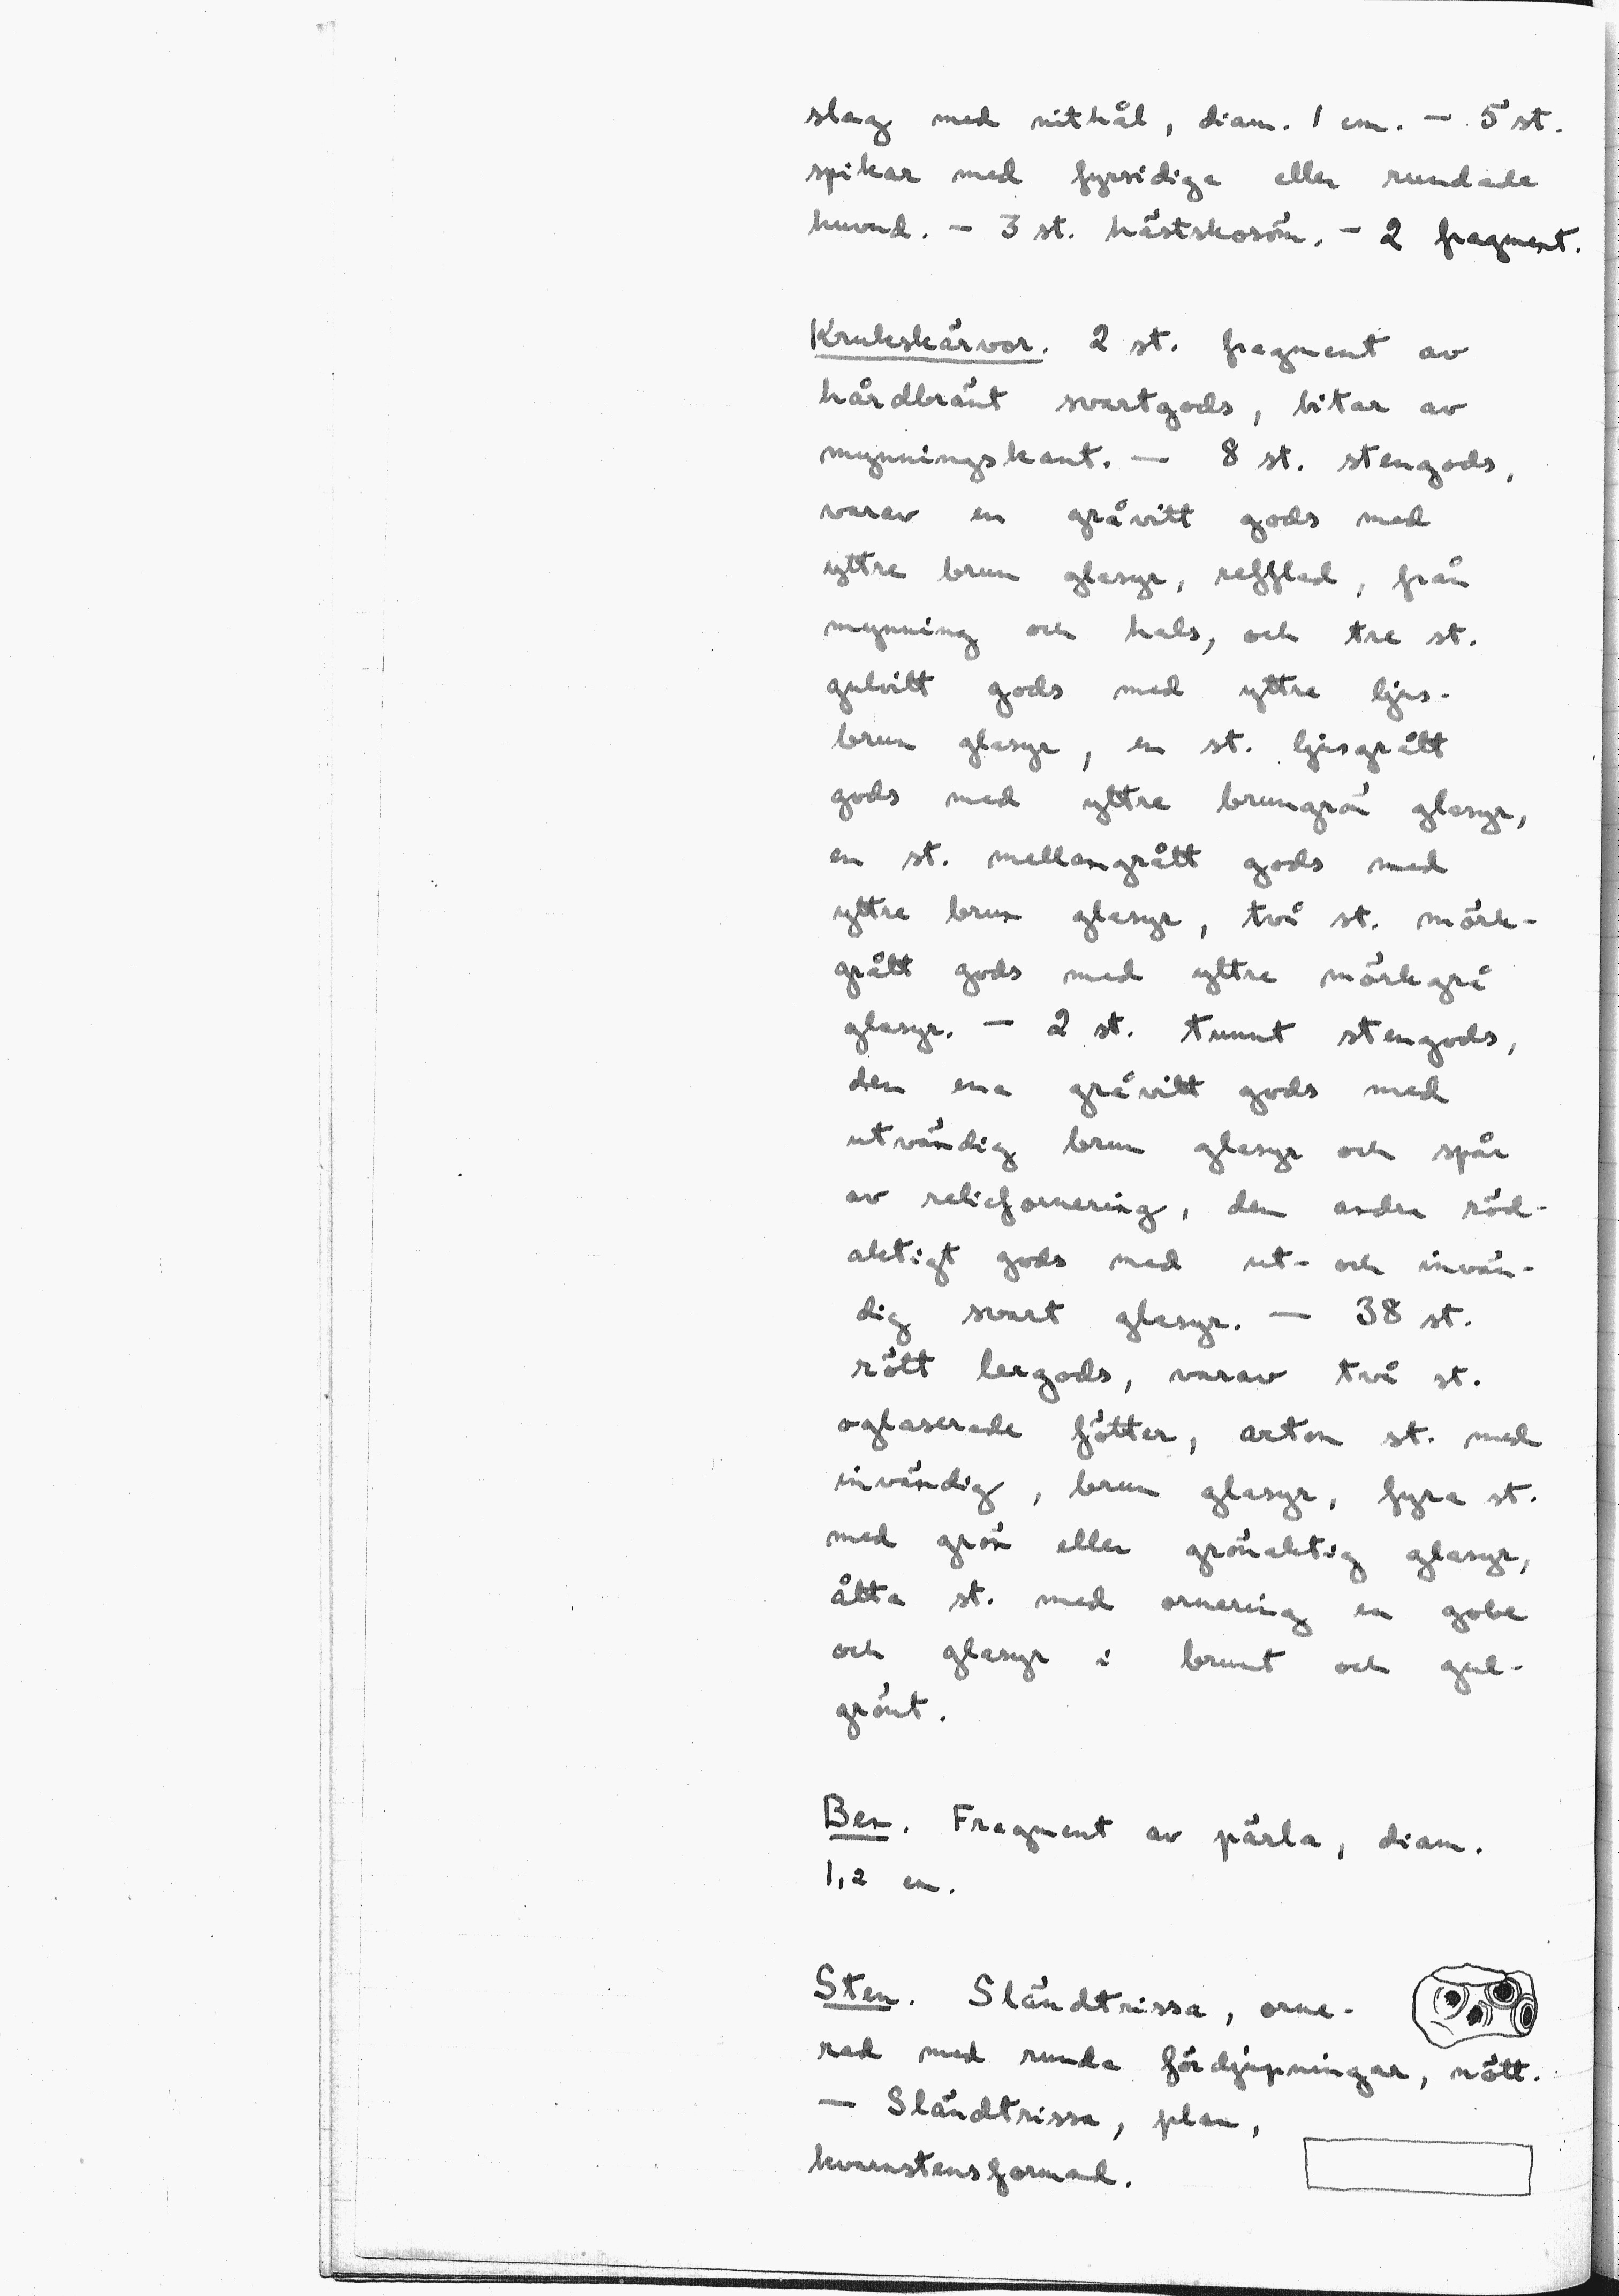 slag med nithål, diam. 1 cm. – 5 st.
spikar med fyrsidiga eller rundade
huvud. – 3 st. hästskosöm. – 2 fragment.
Krukskärvor. 2 st. fragment av
hårdbränt svartgods, bitar av
mynningskant. – 8 st. stengods,
varav en gråvitt gods med
yttre brun glasyr, refflad, från
mynning och hals, och tre st.
gulvitt gods med yttre ljus-
brun glasyr, en st. ljusgrått
gods med yttre brungrön glasyr,
en st. mellangrått gods med
yttre brun glasyr, två st. mörk-
grått gods med yttre mörkgrå
glasyr. – 2 st. tunnt stengods,
den ena gråvitt gods med
utvändig brun glasyr och spår
av reliefornering, den andra röd-
aktigt gods med ut- och invän-
dig svart glasyr. – 38 st.
rött lergods, varav två st.
oglaserade fötter, arton st. med
invändig, brun glasyr, fyra st.
med grön eller grönaktig glasyr,
åtta st. med ornering en gobe
och glasyr i brunt och gul-
grönt.
Ben. Fragment av pärla, diam.
1,2 cm.
Sten. Sländtrissa, orne-
rad med runda fördjupningar, nött.
– Sländtrissa, plan,
kvarnstensformad.